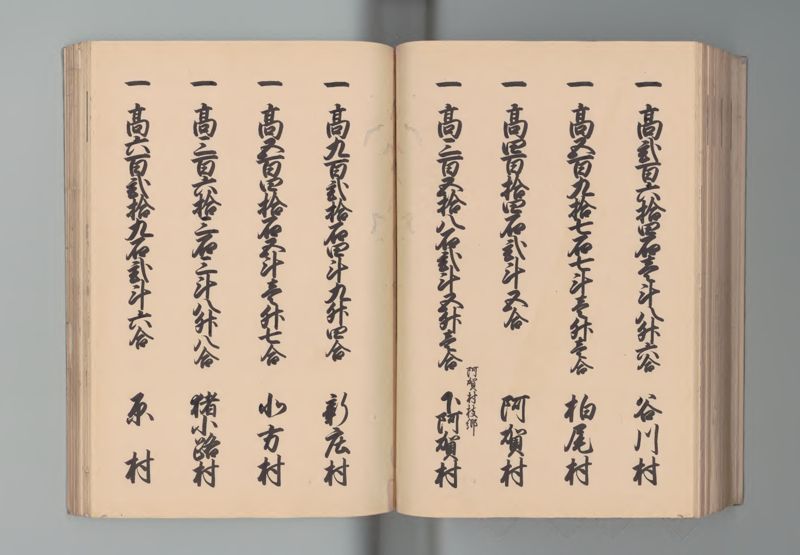 一 高弐百六拾四石壱斗八升六合 谷川村
一 高五百九拾七石七斗壱升壱合 柏尾村
一 高四百拾四石弐斗五合 阿賀村
阿賀村枝郷
一 高三百五拾八石弐斗五升壱合 下阿賀村
一 高九百弐拾石四斗九升四合 新庄村
一 高五百四拾石五斗壱升七合 北方村
一 高三百六拾三石三斗八升八合 猪小路村
一 高六百弐拾九石弐斗六合 原村